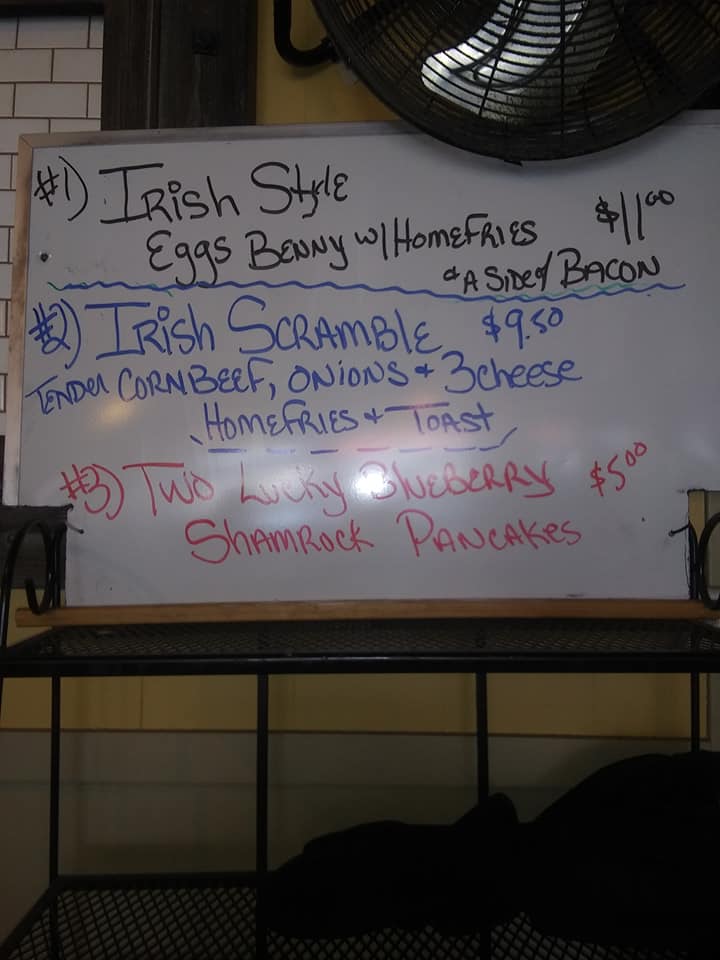 #1) Irish Style
Eggs Benny w/ HomeFries $11.00
& A Side of Bacon
#2) Irish Scramble $9.50
Tender Corn Beef, Onions & 3 cheese
HomeFries & Toast
#3) Two Lucky Blueberry $5.00
Shamrock Pancakes